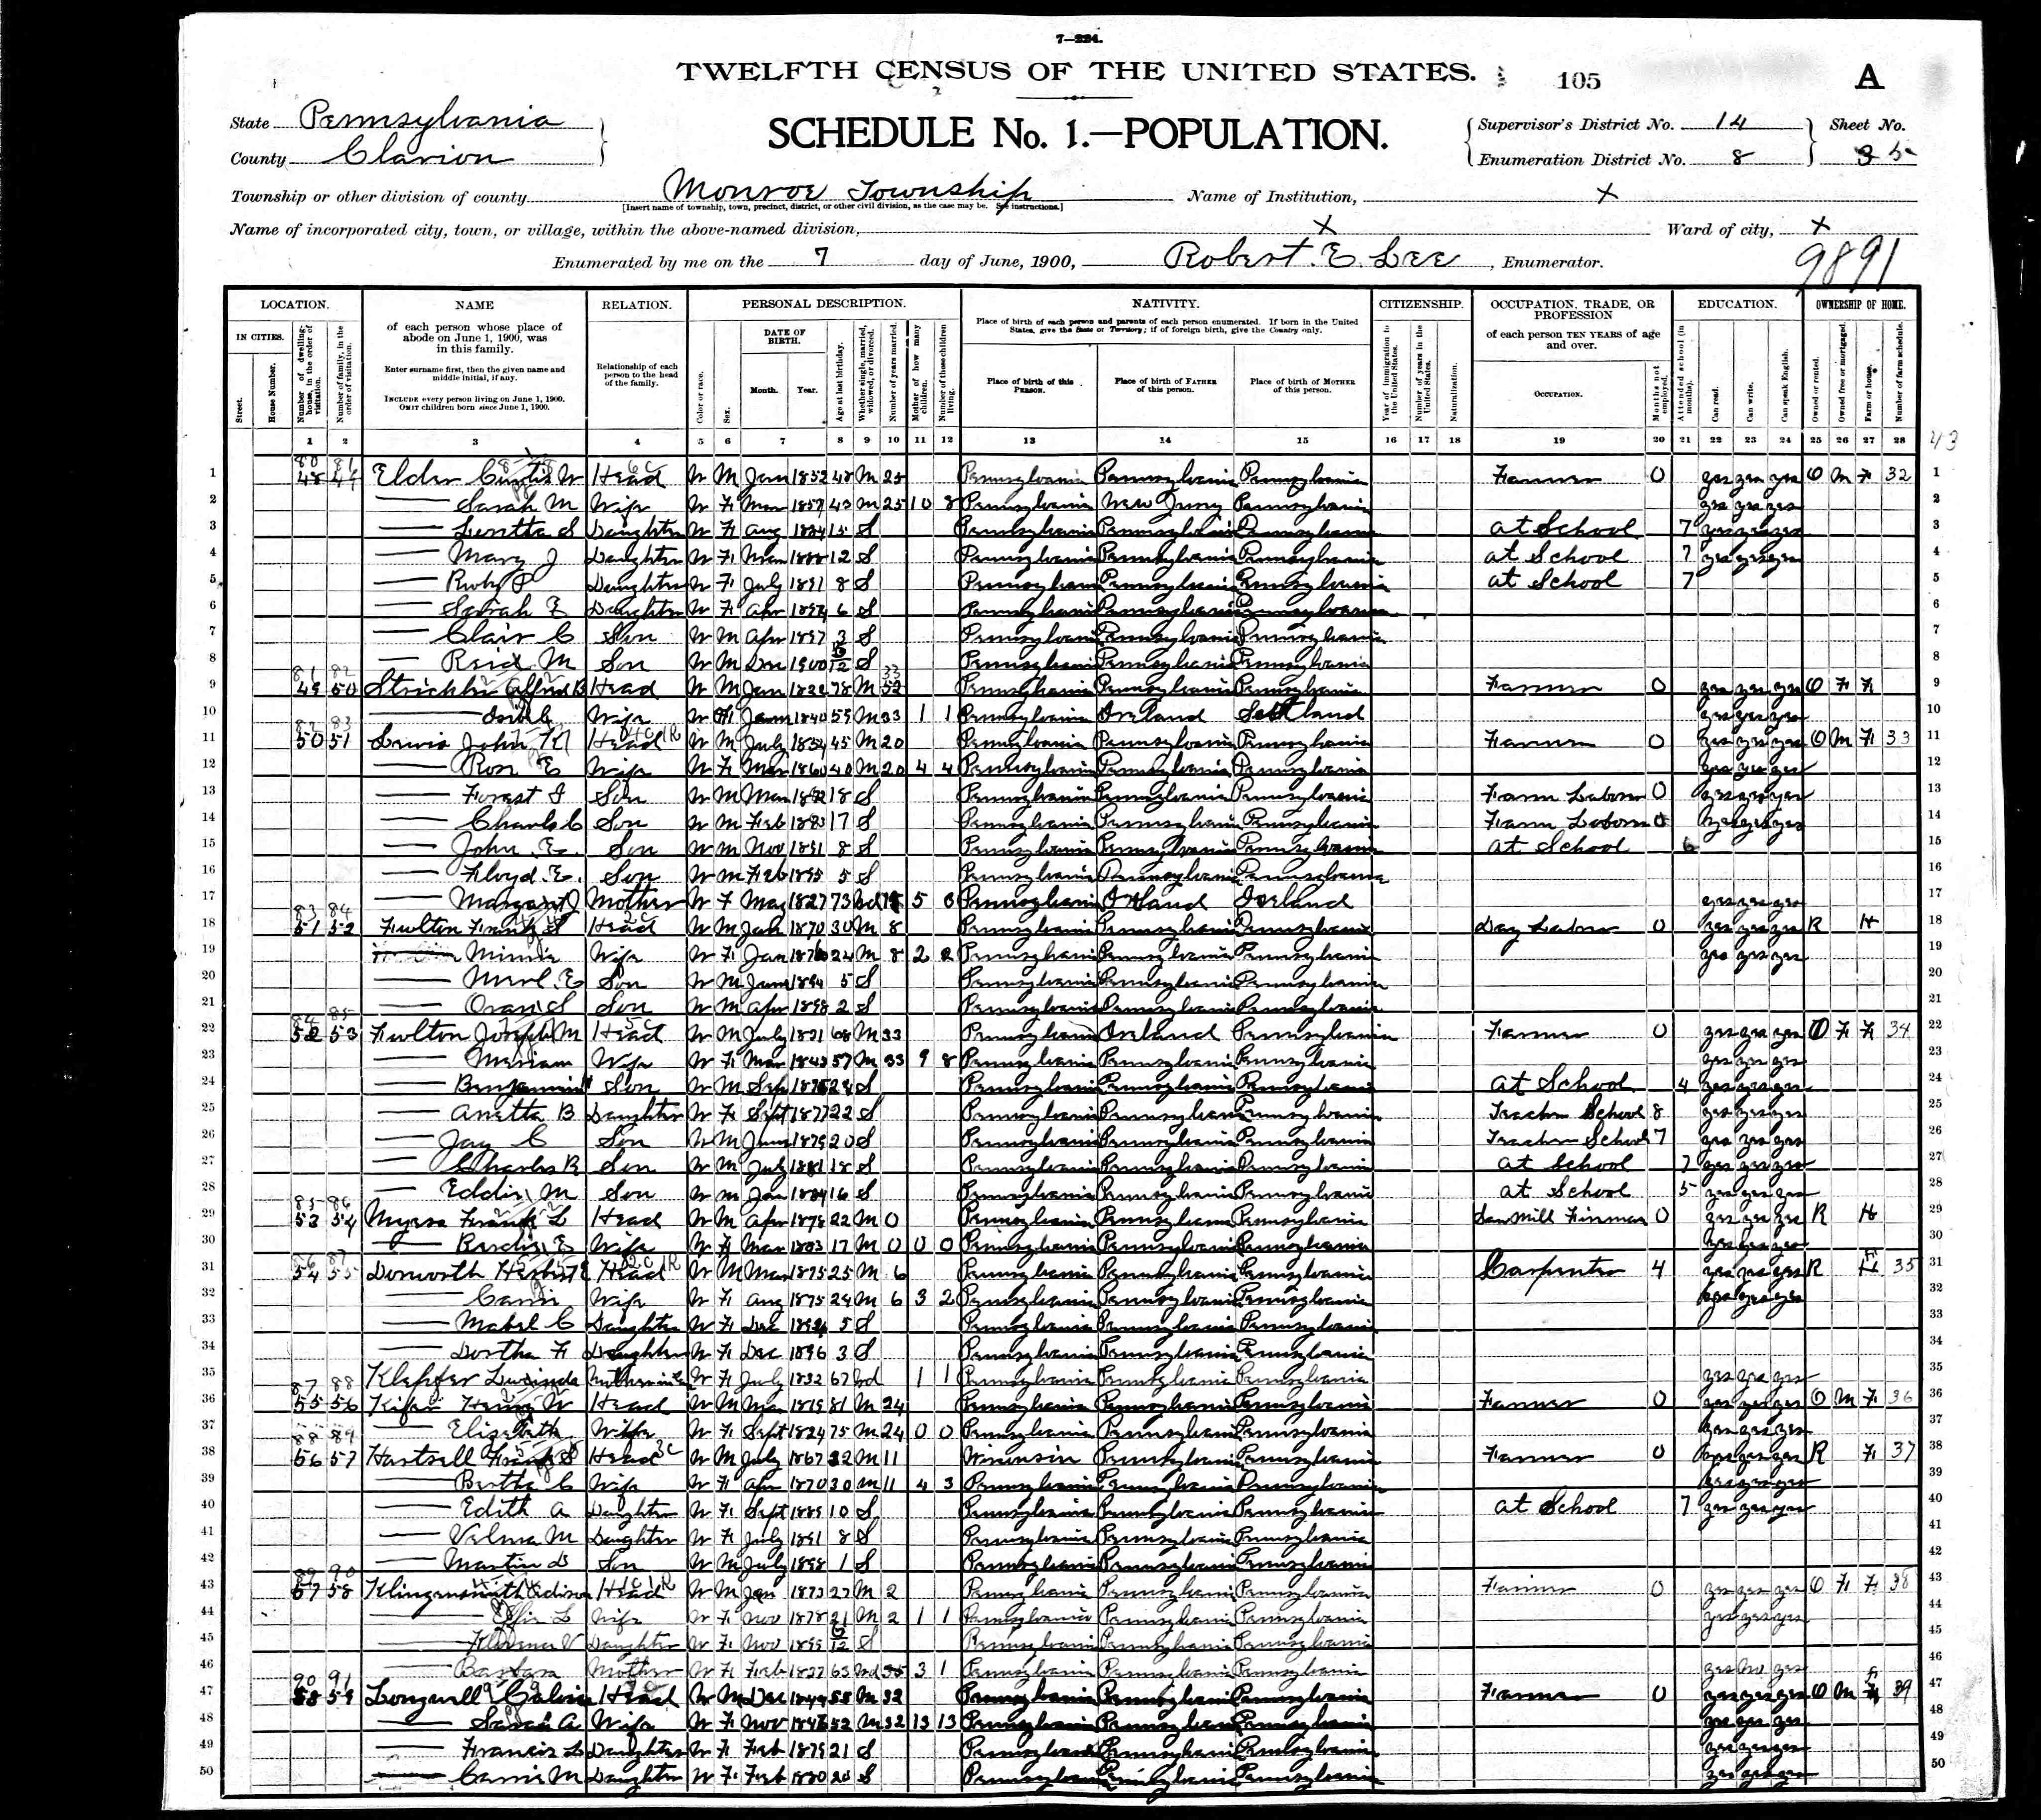 7—224.
TWELFTH CENSUS OF THE UNITED STATES.
105
A
State Pennsylvania
County Clarion
SCHEDULE No. 1.—POPULATION.
Supervisor's District No. 14
Enumeration District No. 8
Sheet No.
5
Township or other division of county Monroe Township
[Insert name of township, town, precinct, district, or other civil division, as the case may be. See instructions.]
Name of Institution, X
Name of incorporated city, town, or village, within the above-named division, X
Ward of city, X
Enumerated by me on the 7 day of June, 1900, Robert. E. Lee, Enumerator.
9891
LOCATION.
IN CITIES.
Street.
House Number.
Number of dwelling-house, in the order of visitation.
Number of family, in the order of visitation.
NAME
of each person whose place of abode on June 1, 1900, was in this family.
Enter surname first, then the given name and middle initial, if any.
INCLUDE every person living on June 1, 1900.
OMIT children born since June 1, 1900.
RELATION.
Relationship of each person to the head of the family.
PERSONAL DESCRIPTION.
Color or race.
Sex.
DATE OF BIRTH.
Month.
Year.
Age at last birthday.
Whether single, married, widowed, or divorced.
Number of years married.
Mother of how many children.
Number of these children living.
NATIVITY.
Place of birth of each person and parents of each person enumerated. If born in the United States, give the State or Territory; if of foreign birth, give the Country only.
Place of birth of this PERSON.
Place of birth of FATHER of this person.
Place of birth of MOTHER of this person.
CITIZENSHIP.
Year of immigration to the United States.
Number of years in the United States.
Naturalization.
OCCUPATION, TRADE, OR PROFESSION
of each person TEN YEARS of age and over.
OCCUPATION.
Months not employed.
EDUCATION.
Attended school (in months).
Can read.
Can write.
Can speak English.
OWNERSHIP OF HOME.
Owned or rented.
Owned free or mortgaged.
Farm or house.
Number of farm schedule.
1 2 3 4 5 6 7 8 9 10 11 12 13 14 15 16 17 18 19 20 21 22 23 24 25 26 27 28
43
1 Elder Curtis W Head W M Jan 1852 48 M 25 Pennsylvania Pennsylvania Pennsylvania Farmer 0 yes yes yes O M F 32 1
2 Sarah M Wife W F Mar 1857 43 M 25 10 8 Pennsylvania New Jersey Pennsylvania yes yes yes 2
3 S Daughter W F Aug 1884 15 S Pennsylvania Pennsylvania Pennsylvania at School 7 yes yes yes 3
4 Mary J Daughter W F Mar 1888 12 S Pennsylvania Pennsylvania Pennsylvania at School 7 yes yes yes 4
5 Ruby P Daughter W F July 1891 8 S Pennsylvania Pennsylvania Pennsylvania at School 7 5
6 Sarah E Daughter W F Apr 1894 6 S Pennsylvania Pennsylvania Pennsylvania 6
7 Clair C Son W M Apr 1897 3 S Pennsylvania Pennsylvania Pennsylvania 7
8 Reid M Son W M Dec 1900 S Pennsylvania Pennsylvania Pennsylvania 8
9 49 50 Strickler Alfred B Head W M Jan 1822 78 M Pennsylvania Pennsylvania Pennsylvania Farmer 0 yes yes yes O F F 9
10 Wife W F Jan 1840 59 M 33 1 1 Pennsylvania Ireland Scotland yes yes yes 10
11 50 51 Lewis John Head W M July 1854 45 M 20 Pennsylvania Pennsylvania Pennsylvania Farmer 0 yes yes yes O M F 33 11
12 Rose E Wife W F Mar 1860 40 M 20 4 4 Pennsylvania Pennsylvania Pennsylvania yes yes yes 12
13 Forest I Son W M Mar 1882 18 S Pennsylvania Pennsylvania Pennsylvania Farm Laborer 0 yes yes yes 13
14 Charles C Son W M Feb 1883 17 S Pennsylvania Pennsylvania Pennsylvania Farm Laborer 0 yes yes yes 14
15 John. E. Son W M Nov 1891 8 S Pennsylvania Pennsylvania Pennsylvania at School 6 15
16 Floyd. E. Son W M Feb 1895 5 S Pennsylvania Pennsylvania Pennsylvania 16
17 Margaret J Mother W F May 1827 73 Wd 5 Pennsylvania Ireland Ireland yes yes yes 17
18 51 52 Fulton S Head W M Jan 1870 30 M 8 Pennsylvania Pennsylvania Pennsylvania Day Labor 0 yes yes yes R H 18
19 Minnie Wife W F Jan 1876 24 M 8 2 2 Pennsylvania Pennsylvania Pennsylvania yes yes yes 19
20 Merl. E Son W M June 1894 5 S Pennsylvania Pennsylvania Pennsylvania 20
21 Oran S Son W M Apr 1898 2 S Pennsylvania Pennsylvania Pennsylvania 21
22 52 53 Fulton Joseph M Head W M July 1831 68 M 33 Pennsylvania Ireland Pennsylvania Farmer 0 yes yes yes O F F 34 22
23 Miriam Wife W F Mar 1843 57 M 33 9 8 Pennsylvania Pennsylvania Pennsylvania yes yes yes 23
24 Benjamin Son W M Sep 1875 24 S Pennsylvania Pennsylvania Pennsylvania at School 4 yes yes yes 24
25 Anetta B Daughter W F Sept 1877 22 S Pennsylvania Pennsylvania Pennsylvania Teacher School 8 yes yes yes 25
26 Jay C Son W M June 1879 20 S Pennsylvania Pennsylvania Pennsylvania Teacher School 7 yes yes yes 26
27 Charles R Son W M July 1881 18 S Pennsylvania Pennsylvania Pennsylvania at School 7 yes yes yes 27
28 Eddie M Son W M Jan 1884 16 S Pennsylvania Pennsylvania Pennsylvania at School 5 yes yes yes 28
29 53 54 Myers Frank L Head W M Apr 1878 22 M 0 Pennsylvania Pennsylvania Pennsylvania Saw Mill Fireman 0 yes yes yes R H 29
30 E Wife W F Mar 1883 17 M 0 0 0 Pennsylvania Pennsylvania Pennsylvania yes yes yes 30
31 54 55 Dorworth Herbert E Head W M Mar 1875 25 M 6 Pennsylvania Pennsylvania Pennsylvania Carpenter 4 yes yes yes R 35 31
32 Carrie Wife W F Aug 1875 24 M 6 3 2 Pennsylvania Pennsylvania Pennsylvania yes yes yes 32
33 Mabel C Daughter W F Dec 1894 5 S Pennsylvania Pennsylvania Pennsylvania 33
34 Dortha F Daughter W F Dec 1896 3 S Pennsylvania Pennsylvania Pennsylvania 34
35 Klepfer Lucinda W F July 1832 67 Wd 1 1 Pennsylvania Pennsylvania Pennsylvania yes yes yes 35
36 55 56 Kifer Henry W Head W M Mar 1819 81 M 24 Pennsylvania Pennsylvania Pennsylvania Farmer 0 yes yes yes O M F 36 36
37 Elizabeth Wife W F Sept 1824 75 M 24 0 0 Pennsylvania Pennsylvania Pennsylvania yes yes yes 37
38 56 57 Hartsell Frank S Head W M July 1867 32 M 11 Wisconsin Pennsylvania Pennsylvania Farmer 0 yes yes yes R F 37 38
39 Bertha C Wife W F Apr 1870 30 M 11 4 3 Pennsylvania Pennsylvania Pennsylvania yes yes yes 39
40 Edith A Daughter W F Sept 1889 10 S Pennsylvania Pennsylvania Pennsylvania at School 7 yes yes yes 40
41 Velma M Daughter W F July 1891 8 S Pennsylvania Pennsylvania Pennsylvania 41
42 Martin Son W M July 1898 1 S Pennsylvania Pennsylvania Pennsylvania 42
43 57 58 Klingensmith Edison Head W M Jan 1873 27 M 2 Pennsylvania Pennsylvania Pennsylvania Farmer 0 yes yes yes O F F 38 43
44 Effie L Wife W F Nov 1878 21 M 2 1 1 Pennsylvania Pennsylvania Pennsylvania yes yes yes 44
45 Florence V Daughter W F Nov 1899 6/12 S Pennsylvania Pennsylvania Pennsylvania 45
46 Barbara Mother W F Feb 1837 63 Wd 35 3 1 Pennsylvania Pennsylvania Pennsylvania yes No yes 46
47 58 59 Longwell Calvin Head W M Dec M 32 Pennsylvania Pennsylvania Pennsylvania Farmer 0 yes yes yes O M F 39 47
48 A Wife W F Nov 52 M 32 13 13 Pennsylvania Pennsylvania Pennsylvania yes yes yes 48
49 Francis L Daughter W F Feb 1879 21 S Pennsylvania Pennsylvania Pennsylvania yes yes yes 49
50 Carrie M Daughter W F Feb 1880 20 S Pennsylvania Pennsylvania Pennsylvania yes yes yes 50